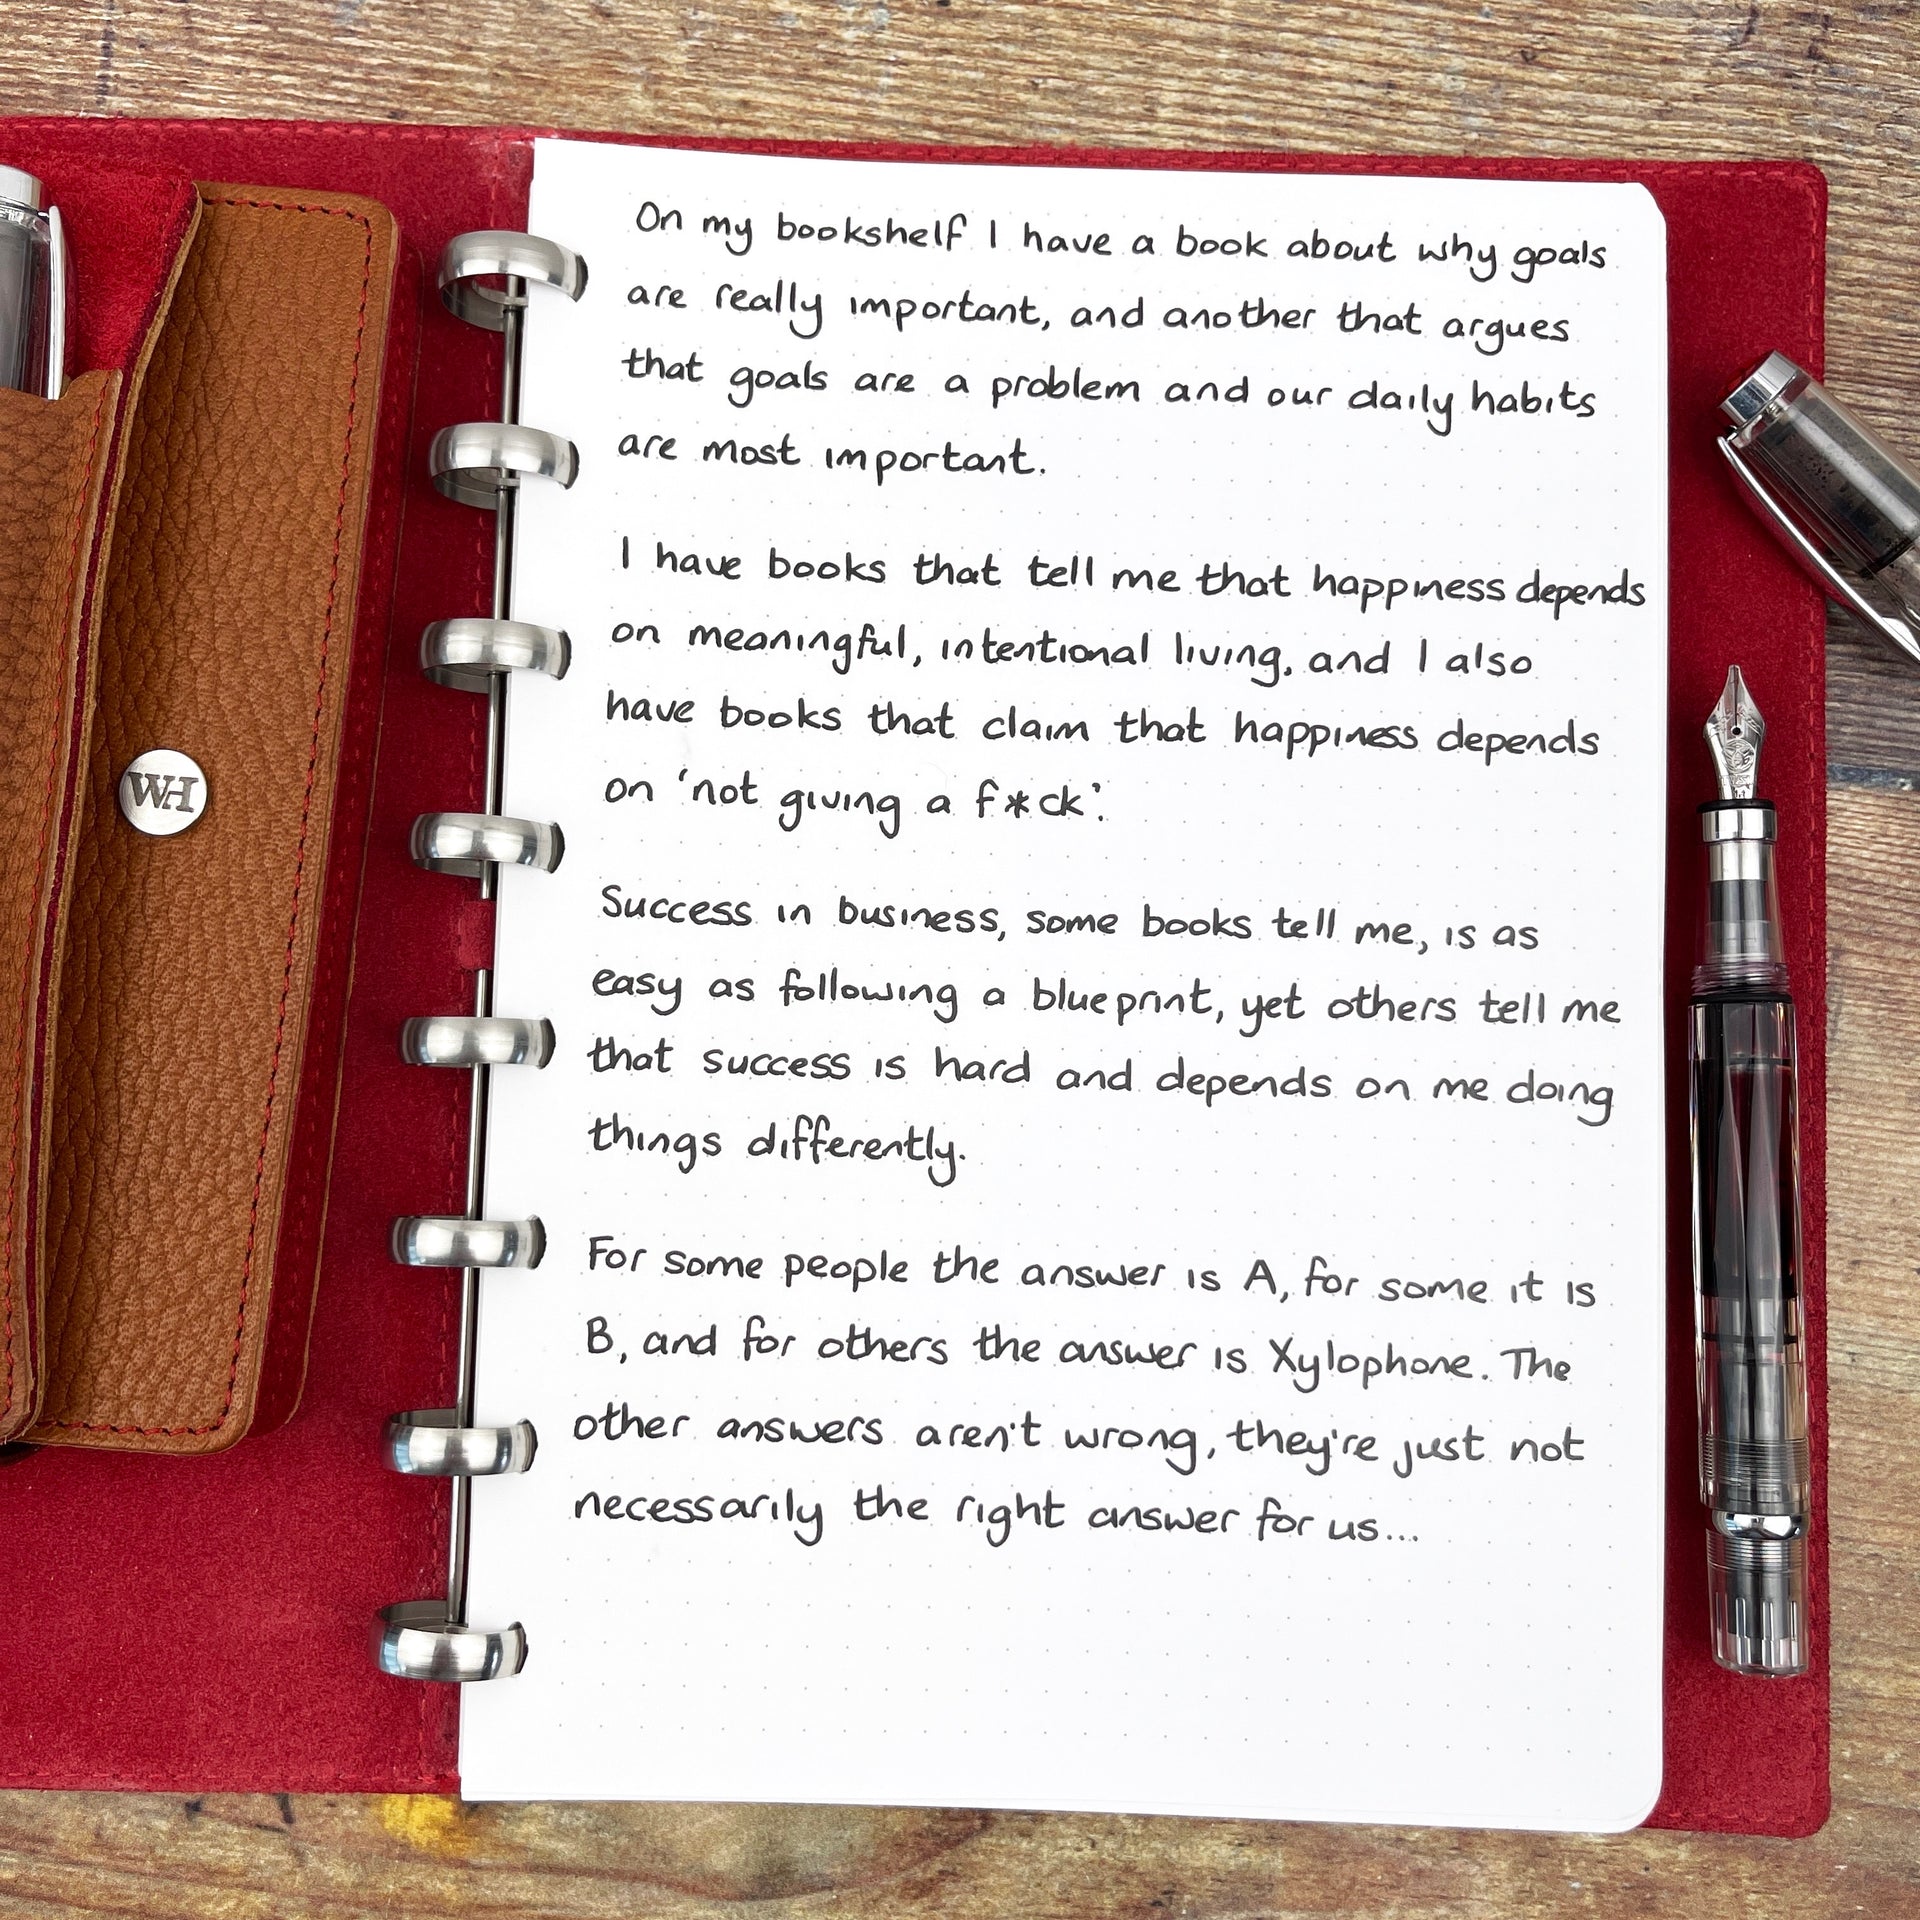 On my bookshelf I have a book about why goals
are really important, and another that argues
that goals are a problem and our daily habits
are most important.
I have books that tell me that happiness depends
on meaningful, intentional living, and I also
have books that claim that happiness depends
on 'not giving a f*ck'.
Success in business, some books tell me, is as
easy as following a blueprint, yet others tell me
that success is hard and depends on me doing
things differently.
For some people the answer is A, for some it is
B, and for others the answer is Xylophone. The
other answers aren't wrong, they're just not
necessarily the right answer for us...
WH